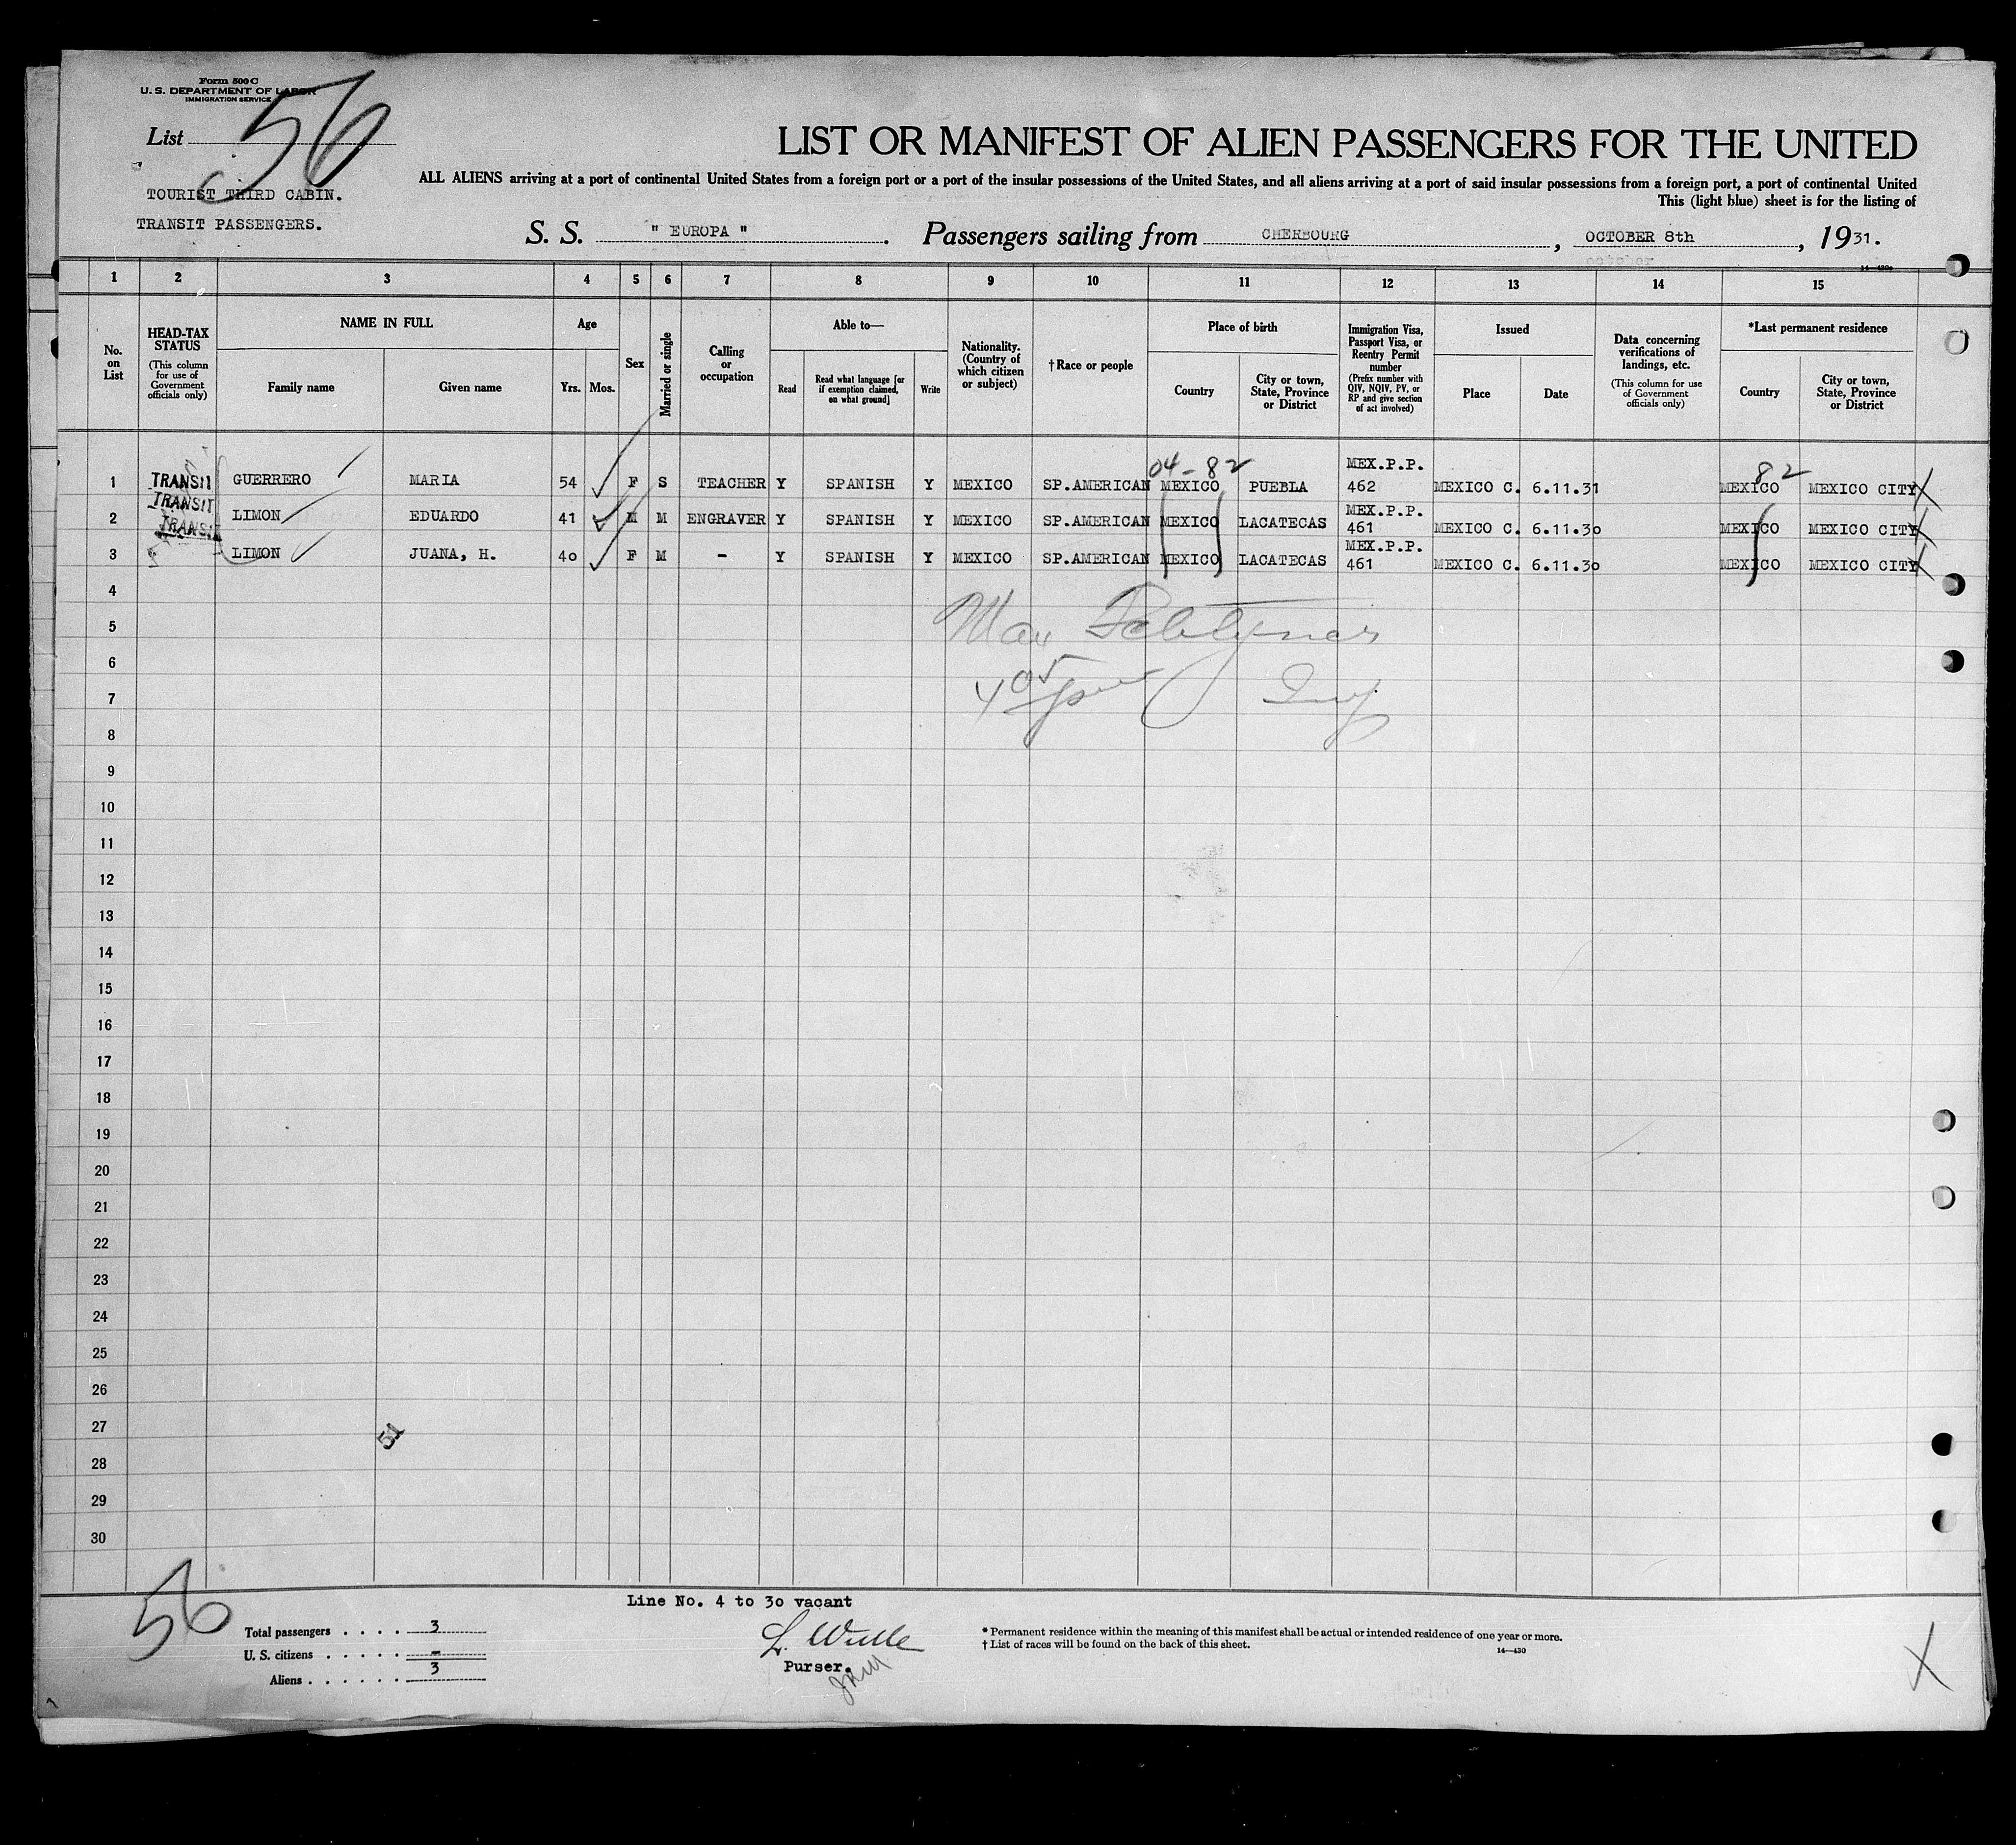 Form 500 C
U. S. DEPARTMENT OF LABOR
IMMIGRATION SERVICE
List 56
TOURIST THIRD CABIN.
TRANSIT PASSENGERS.
LIST OR MANIFEST OF ALIEN PASSENGERS FOR THE UNITED
ALL ALIENS arriving at a port of continental United States from a foreign port or a port of the insular possessions of the United States, and all aliens arriving at a port of said insular possessions from a foreign port, a port of continental United
This (light blue) sheet is for the listing of
S. S. " EUROPA ". Passengers sailing from CHERBOURG, OCTOBER 8th, 1931.
october
14—430a
1 2 3 4 5 6 7 8 9 10 11 12 13 14 15
No. on List
HEAD-TAX STATUS
(This column for use of Government officials only)
NAME IN FULL
Family name
Given name
Age
Yrs. Mos.
Sex
Married or single
Calling or occupation
Able to—
Read
Read what language [or if exemption claimed, on what ground]
Write
Nationality. (Country of which citizen or subject)
† Race or people
Place of birth
Country
City or town, State, Province or District
Immigration Visa, Passport Visa, or Reentry Permit number
(Prefix number with QIV, NQIV, PV, or RP and give section of act involved)
Issued
Place
Date
Data concerning verifications of landings, etc.
(This column for use of Government officials only)
*Last permanent residence
Country
City or town, State, Province or District
04-82
82
1 TRANSIT GUERRERO MARIA 54 F S TEACHER Y SPANISH Y MEXICO SP.AMERICAN MEXICO PUEBLA MEX.P.P. 462 MEXICO C. 6.11.31 MEXICO MEXICO CITY X
2 TRANSIT LIMON EDUARDO 41 M M ENGRAVER Y SPANISH Y MEXICO SP.AMERICAN MEXICO LACATECAS MEX.P.P. 461 MEXICO C. 6.11.30 MEXICO MEXICO CITY X
3 TRANSIT LIMON JUANA, H. 40 F M - Y SPANISH Y MEXICO SP.AMERICAN MEXICO LACATECAS MEX.P.P. 461 MEXICO C. 6.11.30 MEXICO MEXICO CITY X
4
5 Max
6
7 405
8
9
10
11
12
13
14
15
16
17
18
19
20
21
22
23
24
25
26
27
28
29
30
51
56
Line No. 4 to 30 vacant
Total passengers . . . . 3
U. S. citizens . . . . . -
Aliens . . . . . . 3
Purser.
* Permanent residence within the meaning of this manifest shall be actual or intended residence of one year or more.
† List of races will be found on the back of this sheet.
14—430
X